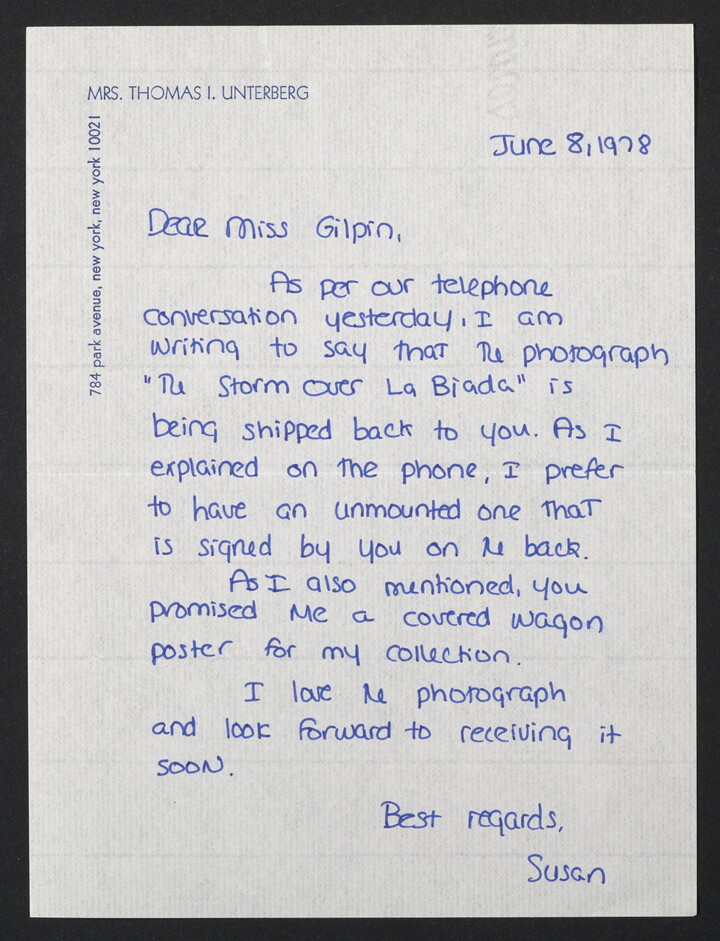 MRS. THOMAS I. UNTERBERG
784 park avenue, new york, new york 10021
June 8, 1978
Dear Miss Gilpin,
As per our telephone
conversation yesterday, I am
writing to say that the photograph
"The Storm over La Biada" is
being shipped back to you. As I
explained on the phone, I prefer
to have an unmounted one that
is signed by you on the back.
As I also mentioned, you
promised me a covered wagon
poster for my collection.
I love the photograph
and look forward to receiving it
soon.
Best regards,
Susan